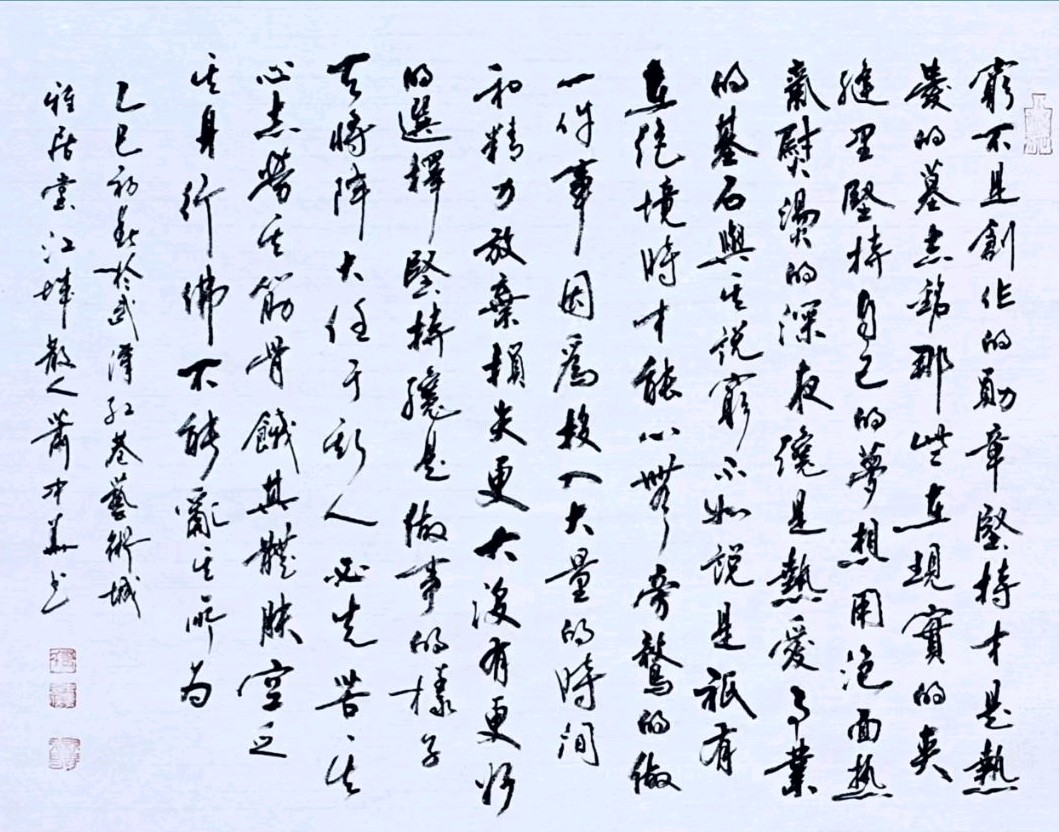 窮不是創作的勛章堅持才是熱
愛的墓志銘那些在現實的夾
縫里堅持自己的夢想用泡面热
氣熨燙的深夜纔是熱愛事業
的基石與其説窮不如説是祇有
在绝境時才能心無旁鶩的做
一件事因爲投入大量的時间
和精力放棄損失更大没有更好
的選擇堅持纔是做事的樣子
天将降大任于斯人必先苦其
心志勞其筋骨餓其體肤空乏
其身行拂不能亂其所为
乙巳初春於武漢紅巷藝術城
雅居堂江城散人